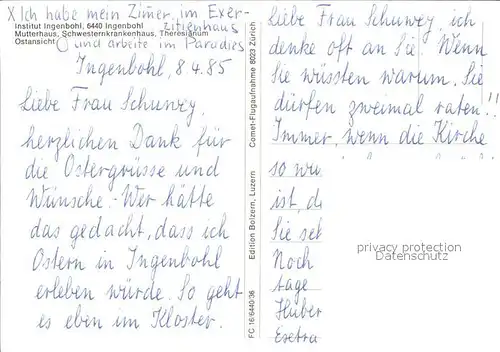 X Ich habe mein Zimer im Exer-
zitienhaus
Institut Ingenbohl, 6440 Ingenbohl
Mutterhaus, Schwesternkrankenhaus, Theresianum
Ostansicht
und arbeite im Paradies
Ingenbohl, 8.4.85
Liebe Frau Schuwey,
herzlichen Dank für
die Ostergrüsse und
Wünsche. Wer hätte
das gedacht, dass ich
Ostern in Ingenbohl
erleben würde. So geht
es eben im Kloster.
FC 16/6440/36
Edition Bolzern, Luzern
Comet-Flugaufnahme 8023 Zürich
Liebe Frau Schuwey, ich
denke oft an Sie. Wenn
Sie wüssten warum. Sie
dürfen zweimal raten!!
Immer, wenn die Kirche
so wu
ist, d
Sie se
Noch
tage
Huber
Exetra
privacy protection
Datenschutz